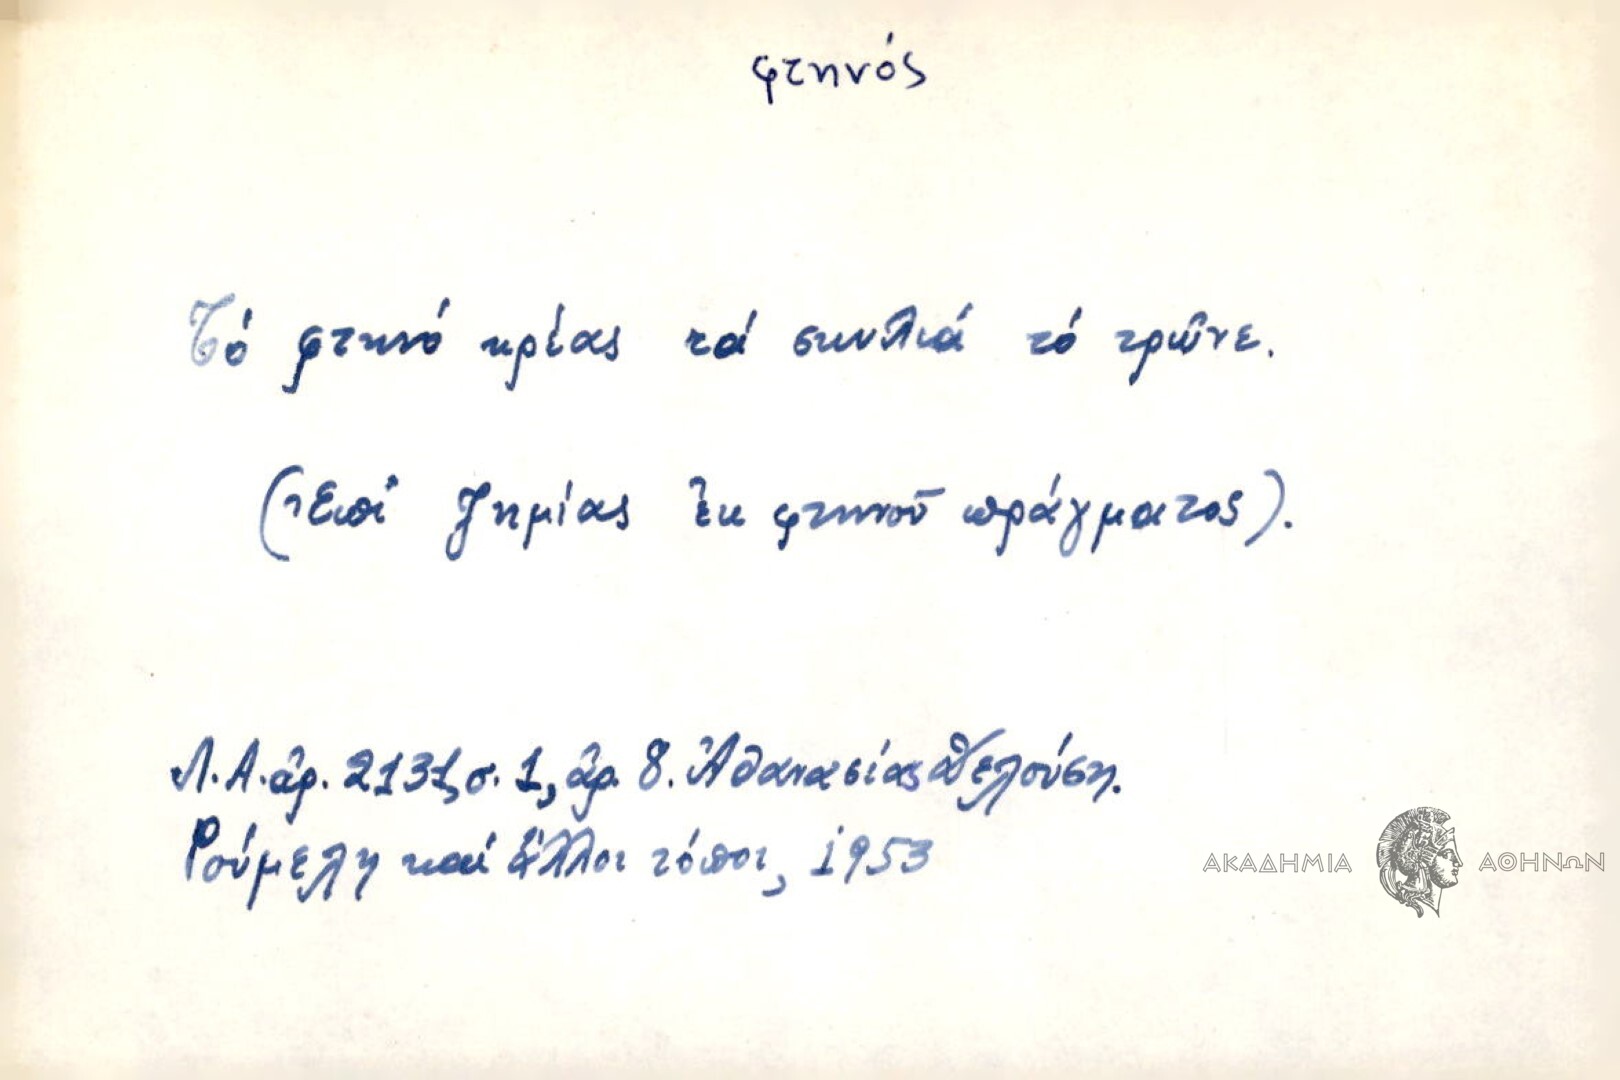 φτηνός
Τό φτηνό κρέας τά σκυλιά τό τρῶνε.
(Ἐπί ζημίας ἐκ φτηνοῦ πράγματος).
Λ.Α. ἀρ. 2131, σ. 1, ἀρ. 8. Ἀθανασίας
Ρούμελη καί ἄλλοι τόποι, 1953
ΑΚΑΔΗΜΙΑ ΑΘΗΝΩΝ